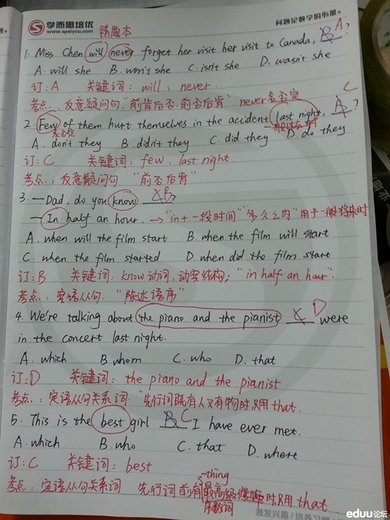 学而思培优
www.speiyou.com
错题本
问题是数学的心脏。
1. Miss Chen will never forget her visit her visit to Canada, B A?
A. will she B. won't she C. isn't she D. wasn't she
订: A 关键词: will, never.
考点: 反意疑问句, 前肯后否, 前否后肯 never表否定
2. Few of them hurt themselves in the accident last night, A C?
A. don't they B. didn't they C. did they D. do they
订: C 关键词, few, last night.
考点: 反意疑问句 "前否后肯"
3. —Dad, do you know B
—In half an hour. → "in+一段时间" "多久之内" 用于一般将来时
A. when will the film start B. when the film will start
C. when the film started D. when did the film start
订: B 关键词, know 动词, 动宾结构; "in half an hour"
考点: 宾语从句 "陈述语序"
4. We're talking about the piano and the pianist D were
in the concert last night.
A. which B. whom C. who D. that
订: D 关键词: the piano and the pianist
考点: 定语从句关系词 "先行词既有人又有物时只用that.
5. This is the best girl B C I have ever met.
A. which B. who C. that D. where
订: C 关键词: best
-thing
考点: 定语从句关系词 先行词前有最高级 时只用that
序数词
激发兴趣/培养习惯
eduu论坛